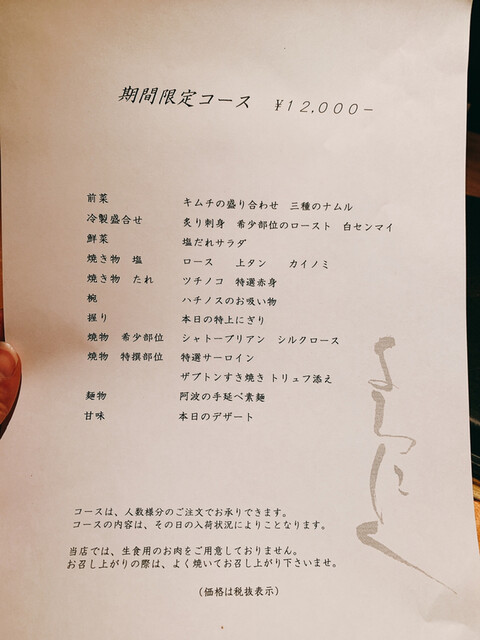 期間限定コース ¥12,000-
前菜 キムチの盛り合わせ 三種のナムル
冷製盛合せ 炙り刺身 希少部位のロースト 白センマイ
鮮菜 塩だれサラダ
焼き物 塩 ロース 上タン カイノミ
焼き物 たれ ツチノコ 特選赤身
椀 ハチノスのお吸い物
握り 本日の特上にぎり
焼物 希少部位 シャトーブリアン シルクロース
焼物 特撰部位 特選サーロイン
ザブトンすき焼き トリュフ添え
麺物 阿波の手延べ素麺
甘味 本日のデザート
よろにく
コースは、人数様分のご注文でお承りできます。
コースの内容は、その日の入荷状況によりことなります。
当店では、生食用のお肉をご用意しておりません。
お召し上がりの際は、よく焼いてお召し上がり下さいませ。
(価格は税抜表示)